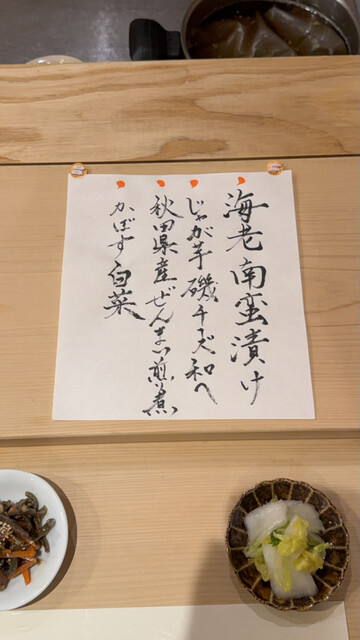 海老南蛮漬け
じゃが芋磯チーズ和へ
秋田県産ぜんまい煎り煮
かぼす白菜